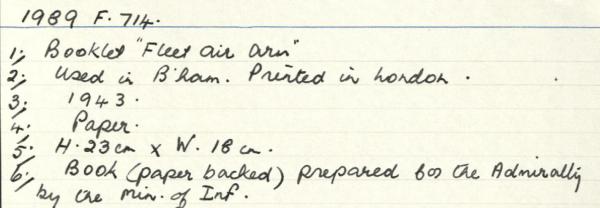 1989 F. 714.
1; Booklet "Fleet air arm"
2; Used in B'ham. Printed in London.
3; 1943.
4; Paper.
5; H. 23 cm x W. 18 cm.
6; Book (paper backed) prepared for the Admiralty
by the Min. of Inf.